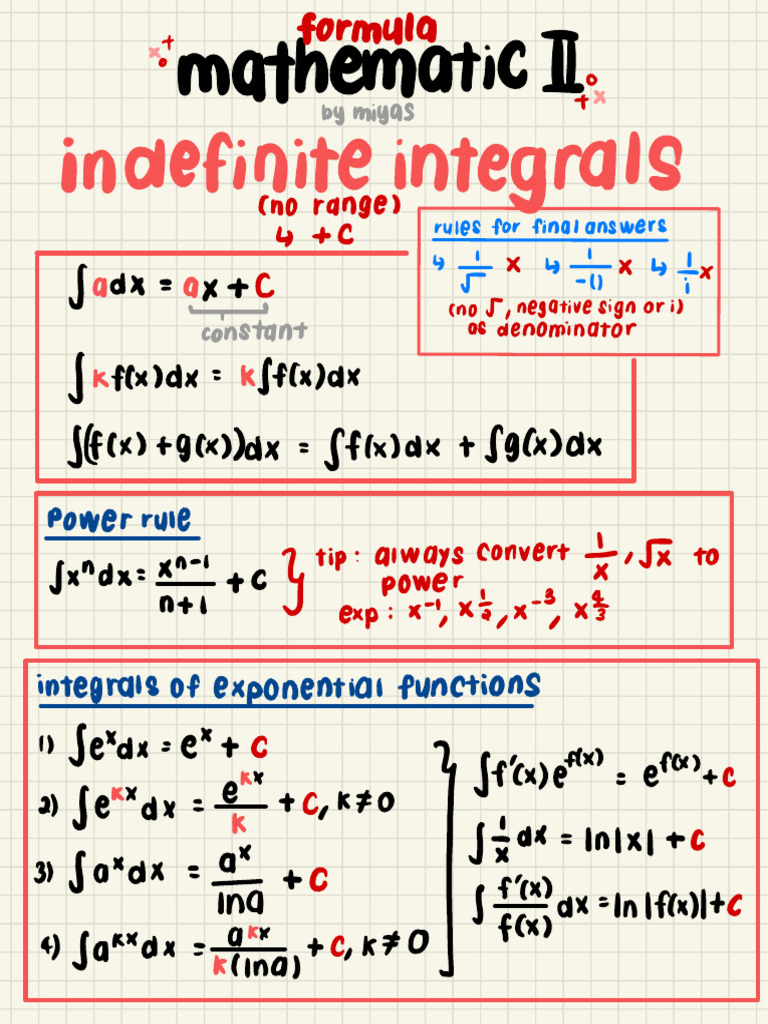 formula
mathematic II
by miyas
indefinite integrals
(no range)
↳ + C
rules for final answers
↳ 1/√ x ↳ 1/-() x ↳ 1/i x
(no √, negative sign or i)
as denominator
∫adx = ax + C
constant
∫kf(x)dx = k∫f(x)dx
∫(f(x) + g(x))dx = ∫f(x)dx + ∫g(x)dx
Power rule
∫xⁿdx = xⁿ⁻¹/n+1 + C
tip: always convert 1/x, √x to
power
exp: x⁻¹, x^1/2, x⁻³, x^4/3
integrals of exponential functions
1) ∫eˣdx = eˣ + C
2) ∫e^kx dx = e^kx/k + C, k≠0
3) ∫aˣdx = aˣ/lna + C
4) ∫a^kx dx = a^kx/k(lna) + C, k≠0
∫f'(x)e^f(x) = e^f(x) + C
∫1/x dx = ln|x| + C
∫f'(x)/f(x) dx = ln|f(x)| + C